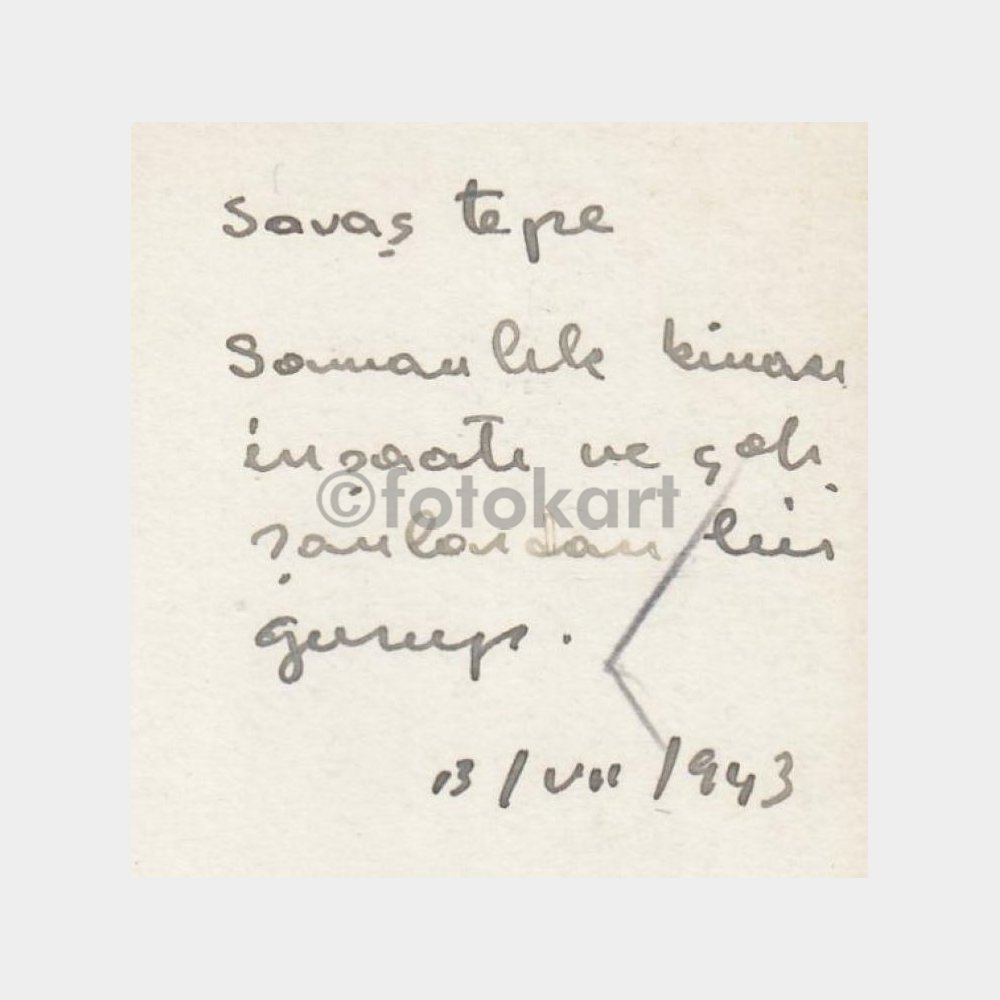 Savaş tepe
Samanlık binası
inşaatı ve çalı
şanlardan bir
gurup.
©fotokart
13/VII/943